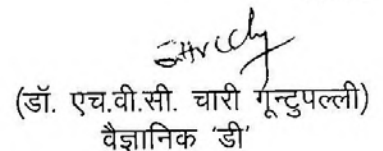 (डॉ. एच.वी.सी. चारी गून्टुपल्ली)
वैज्ञानिक 'डी'